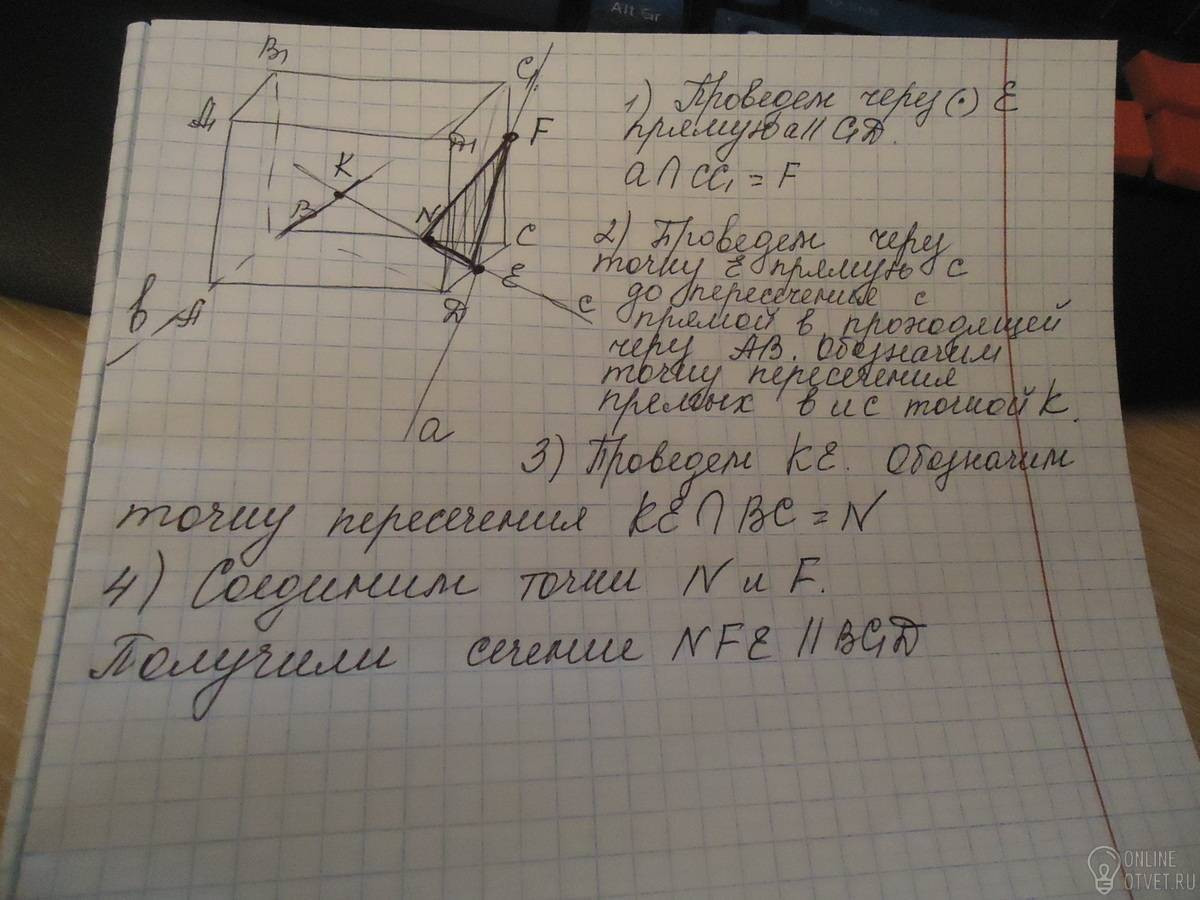 Alt Gr
B₁
C₁
A₁
D₁
F
K
B
N
C
E
D
c
в
A
a
1) Проведем через (·) E
прямую a || C₁D.
a ∩ CC₁ = F
2) Проведем через
точку E прямую с
до пересечения с
прямой в проходящей
черу AB. Обозначим
точку пересечения
прямых в и с точкой K.
3) Проведем KE. Обозначим
точку пересечения KE ∩ BC = N
4) Соединим точки N и F.
Получили сечение NFE || BC₁D
ONLINE
OTVET.RU